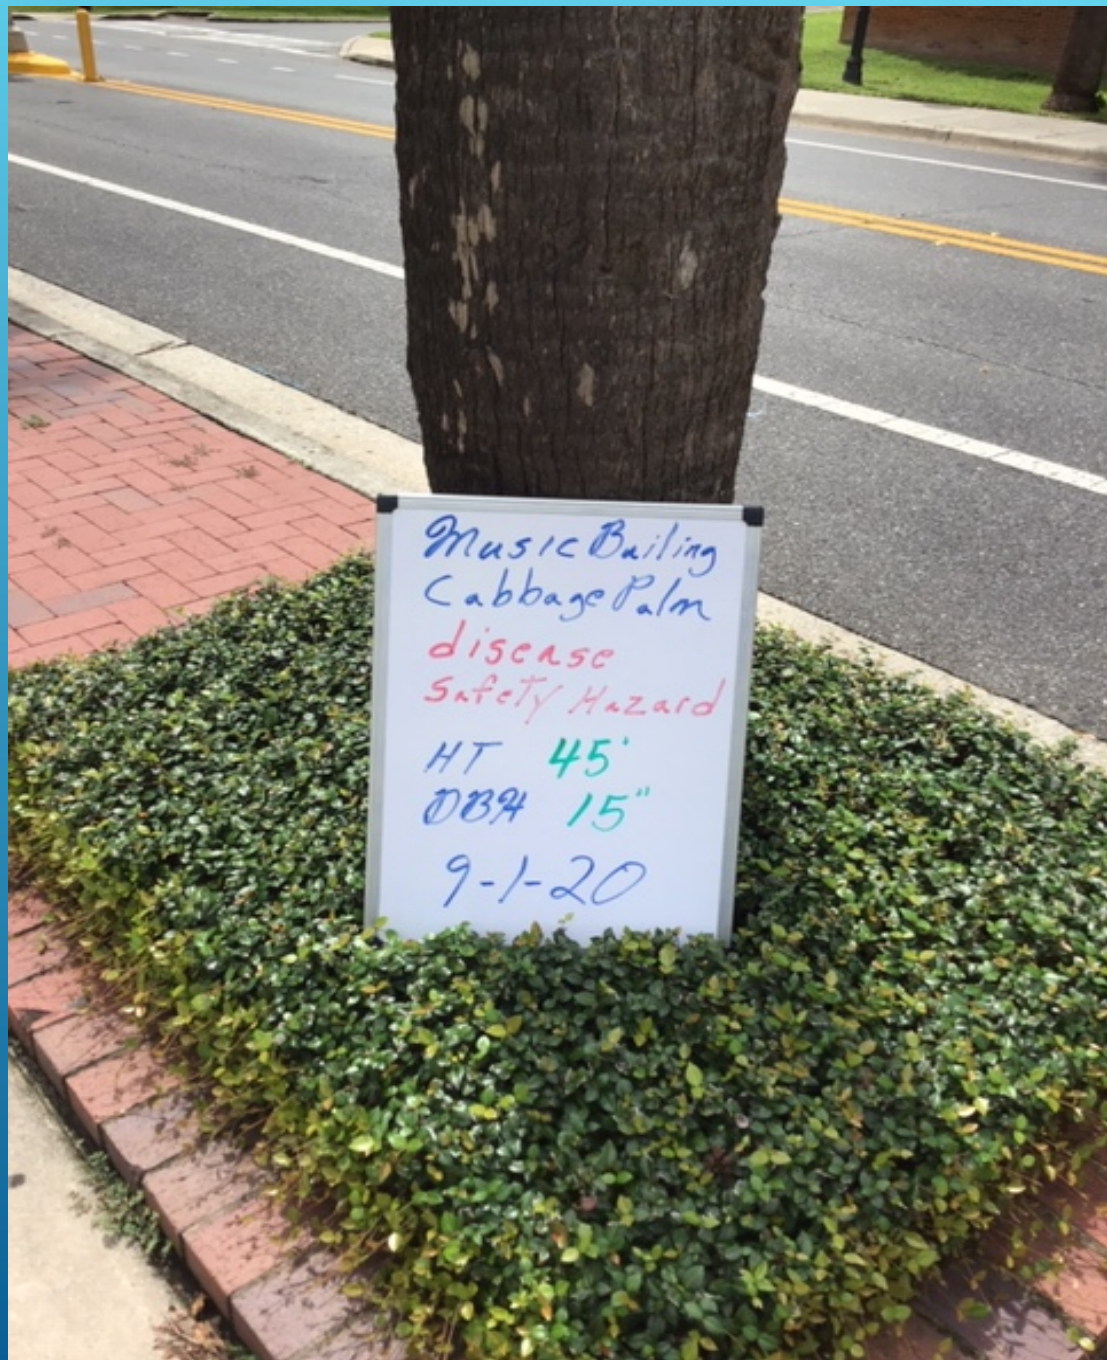 Music Builing
Cabbage Palm
disease
Safety Hazard
HT 45'
DBH 15"
9-1-20